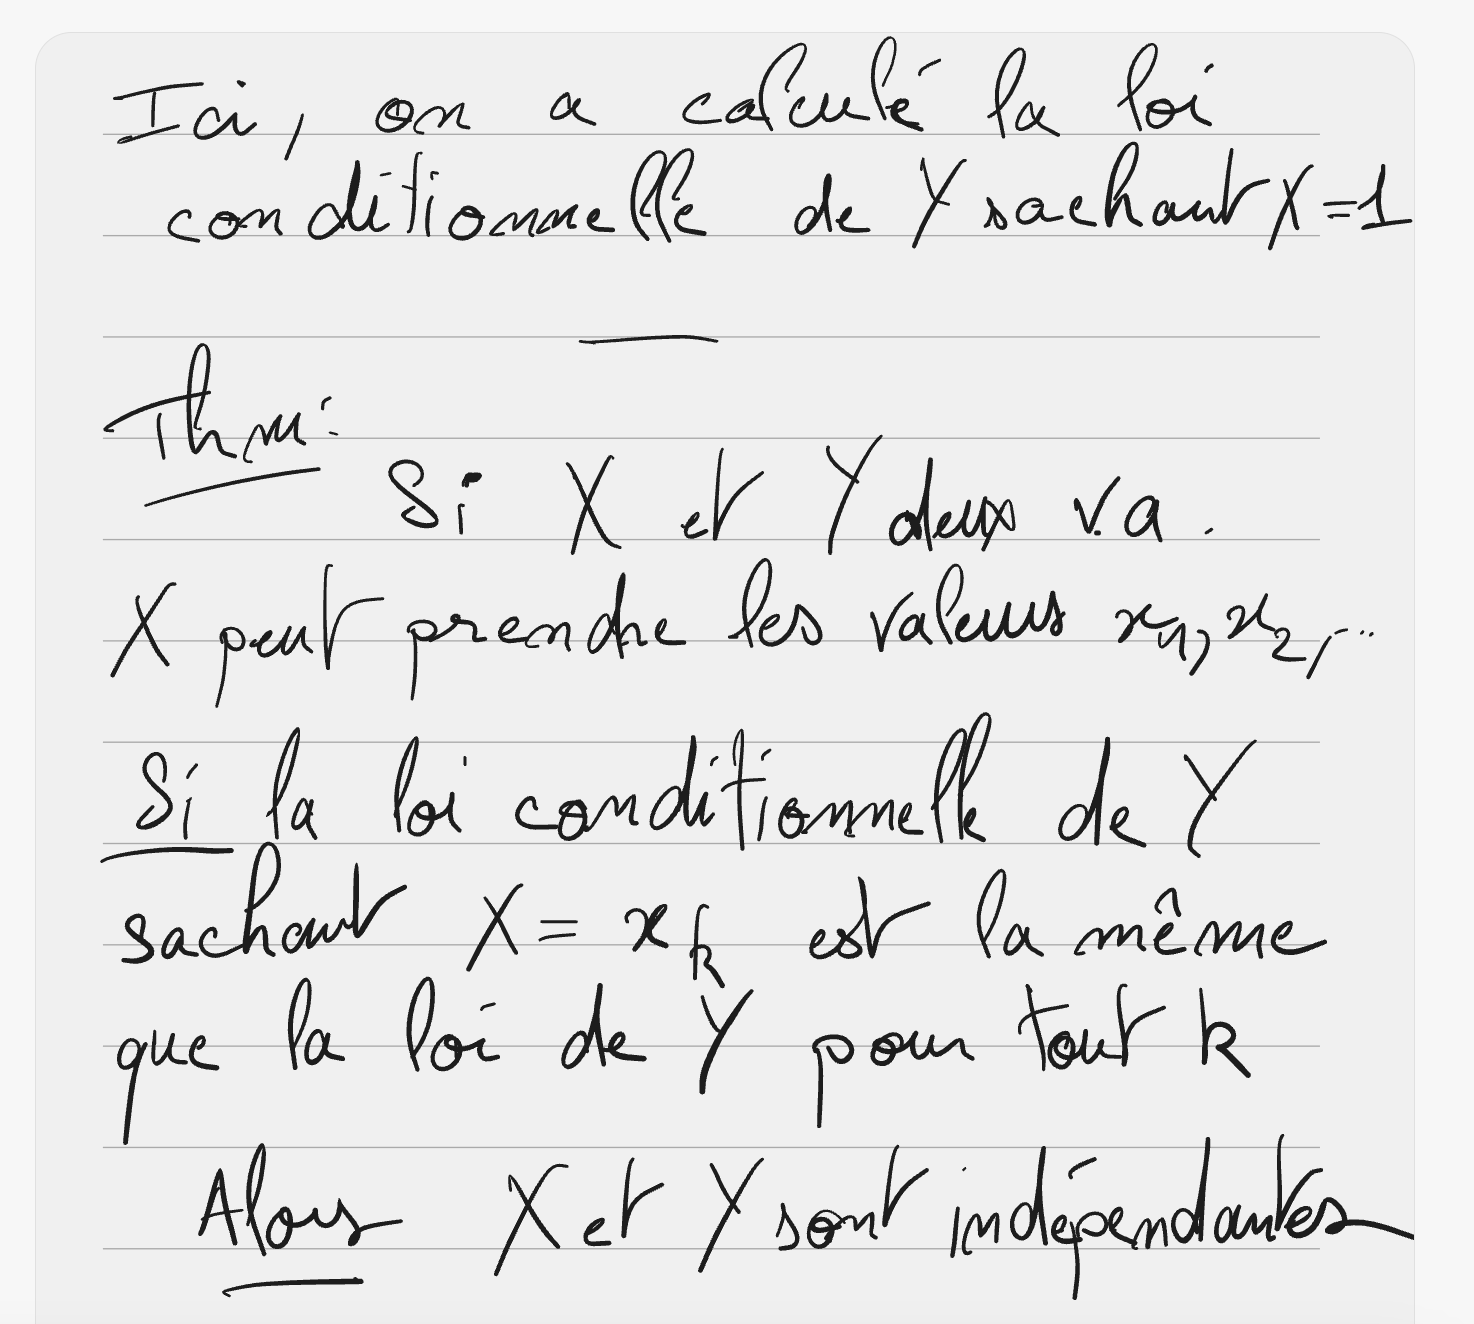 Ici, on a calculé la loi
conditionnelle de Y sachant X=1
Thm:
Si X et Y deux v.a.
X peut prendre les valeurs x₁, x₂, ...
Si la loi conditionnelle de Y
sachant X = xₖ est la même
que la loi de Y pour tout k
Alors X et Y sont indépendantes